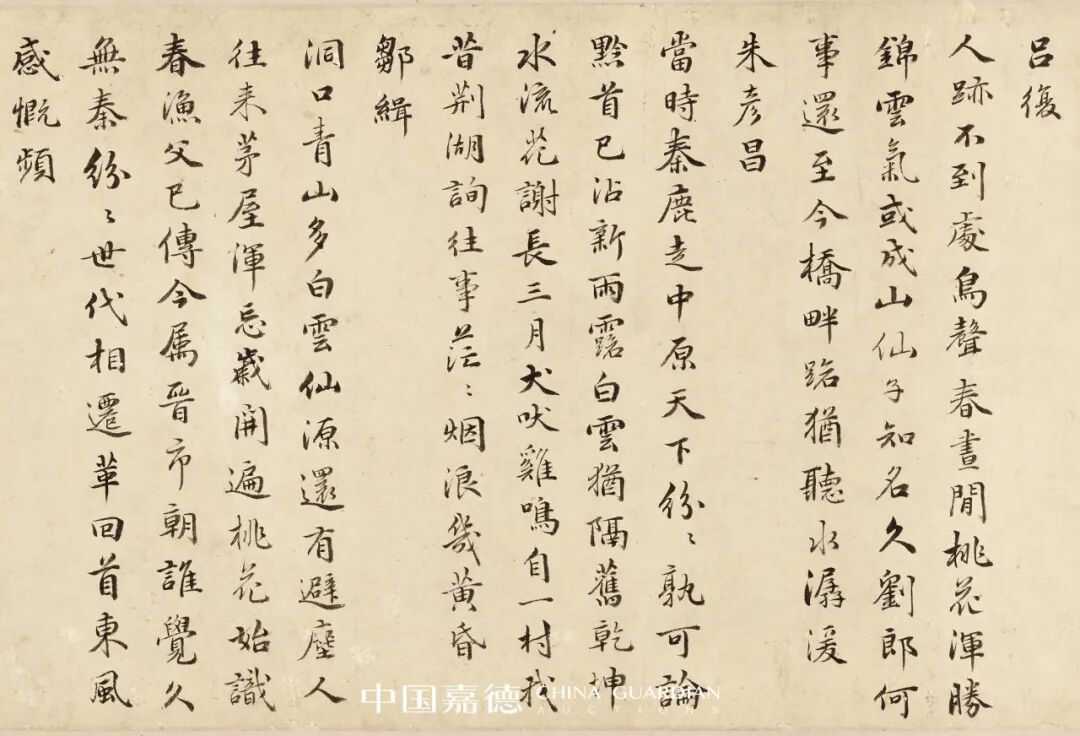 呂復
人跡不到處鳥聲春晝閒桃花渾勝
錦雲氣或成山仙子知名久劉郎何
事還至今橋畔路猶聽水潺湲
朱彥昌
當時秦鹿走中原天下紛〻孰可論
黔首已沾新雨露白雲猶隔舊乾坤
水流花謝長三月犬吠雞鳴自一村我
昔荊湖詢往事茫〻烟浪幾黃昏
鄒緝
洞口青山多白雲仙源還有避塵人
往来茅屋渾忘歲開遍桃花始識
春漁父已傳今屬晉市朝誰覺久
無秦紛〻世代相遷革回首東風
感慨頻
中国嘉德 CHINA GUARDIAN
AUCTIONS